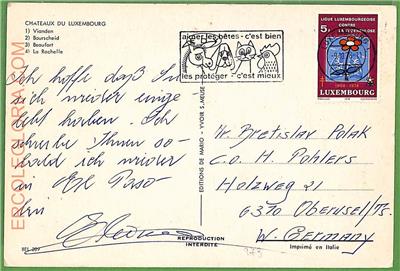 CHATEAUX DU LUXEMBOURG
1) Vianden
2) Bourscheid
3) Beaufort
4) La Rochette
aimer les bêtes - c'est bien
les protéger - c'est mieux
LIGUE LUXEMBOURGEOISE
CONTRE
LA TUBERCULOSE
5F
1908 - 1978
LUXEMBOURG
Ich hoffe daß Sie
sich wieder einge
lebt haben. Ich
schreibe Ihnen so-
bald ich wieder
in El Paso
bin
Mr. Bretislav Polak
c.o. H. Pohlers
Holzweg 21
6370 Oberursel/Ts.
W. Germany
EDITIONS DE MARIO - YVOIR S. MEUSE
REPRODUCTION
INTERDITE
Imprimé en Italie
BFS 209
ERCOLEGLORIA.COM